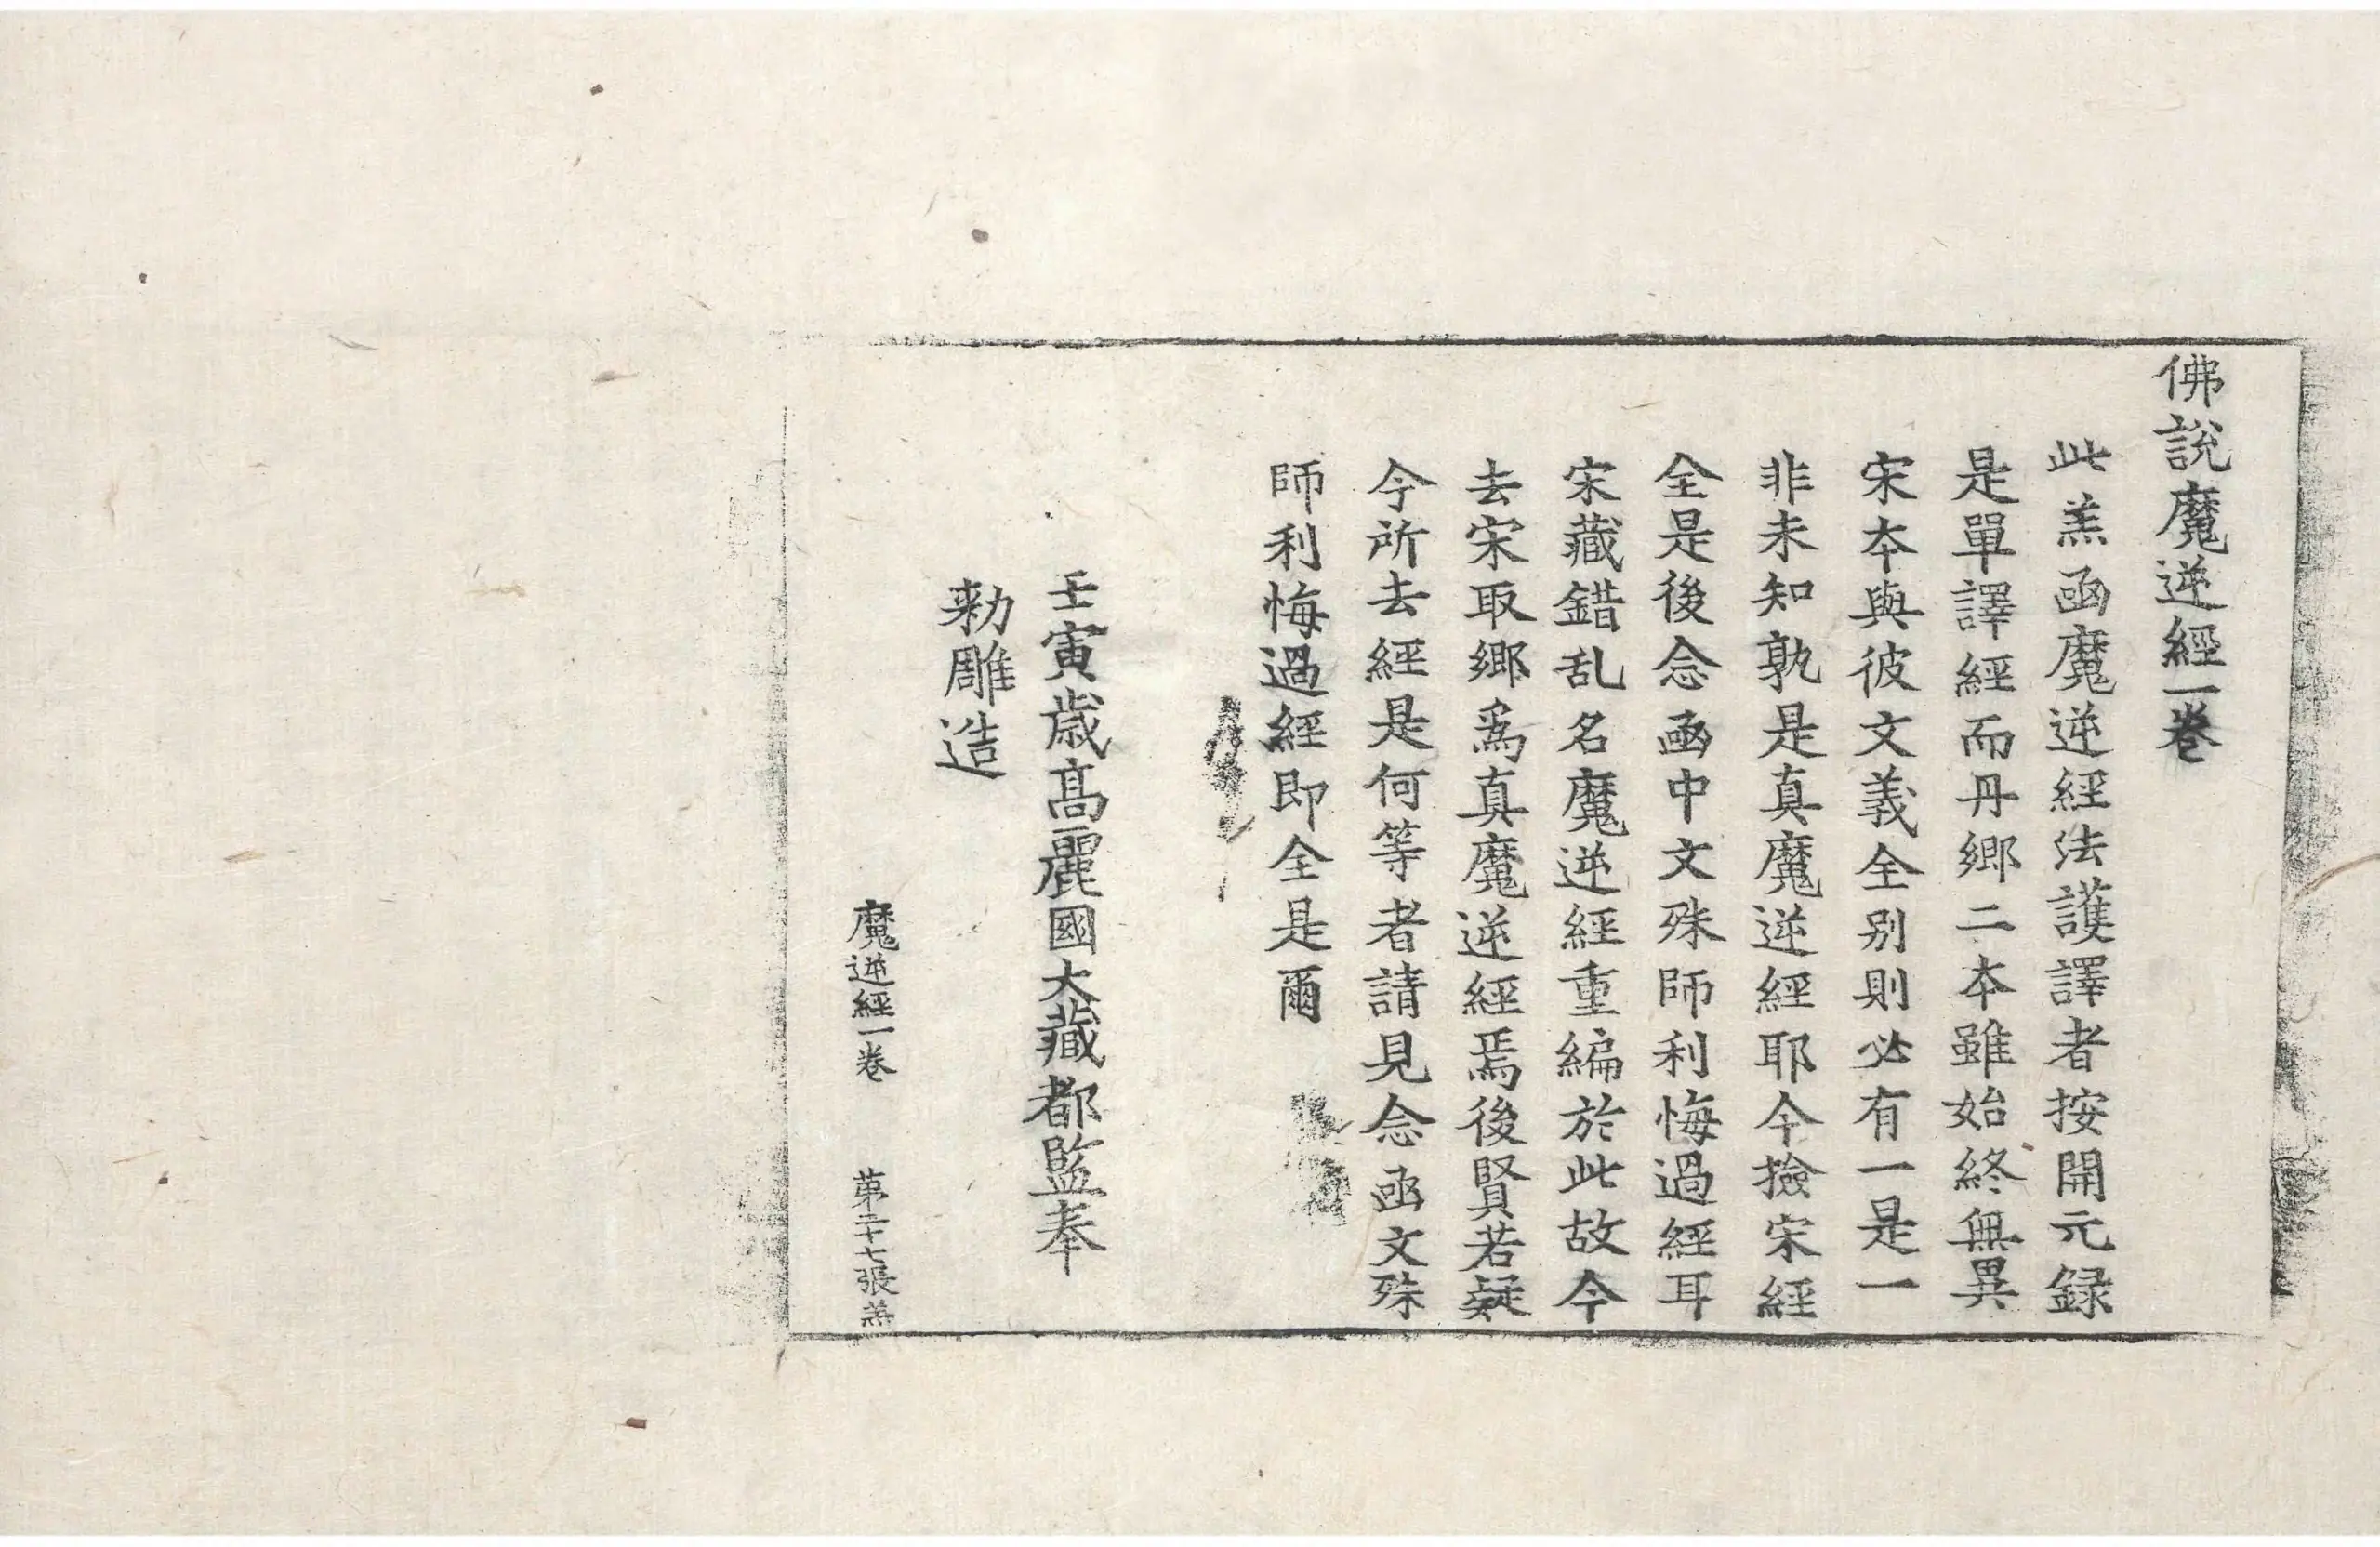 佛說魔逆經一卷
此羔函魔逆經法護譯者按開元録
是單譯經而丹鄉二本雖始終無異
宋本與彼文義全别則必有一是一
非未知孰是真魔逆經耶今撿宋經
全是後念函中文殊師利悔過經耳
宋藏錯乱名魔逆經重編於此故今
去宋取鄉爲真魔逆經焉後賢若疑
今所去經是何等者請見念函文殊
師利悔過經即全是爾
壬寅歲高麗國大藏都監奉
勅雕造
魔逆經一卷 第二十七張羔